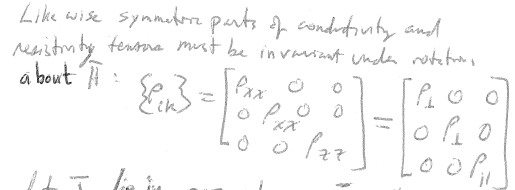 Likewise symmetric parts of conductivity and
resistivity tensors must be invariant under rotations
about H̄ : {ρ_ik} = [ρ_xx 0 0 ; 0 ρ_xx 0 ; 0 0 ρ_zz] = [ρ_⊥ 0 0 ; 0 ρ_⊥ 0 ; 0 0 ρ_||]